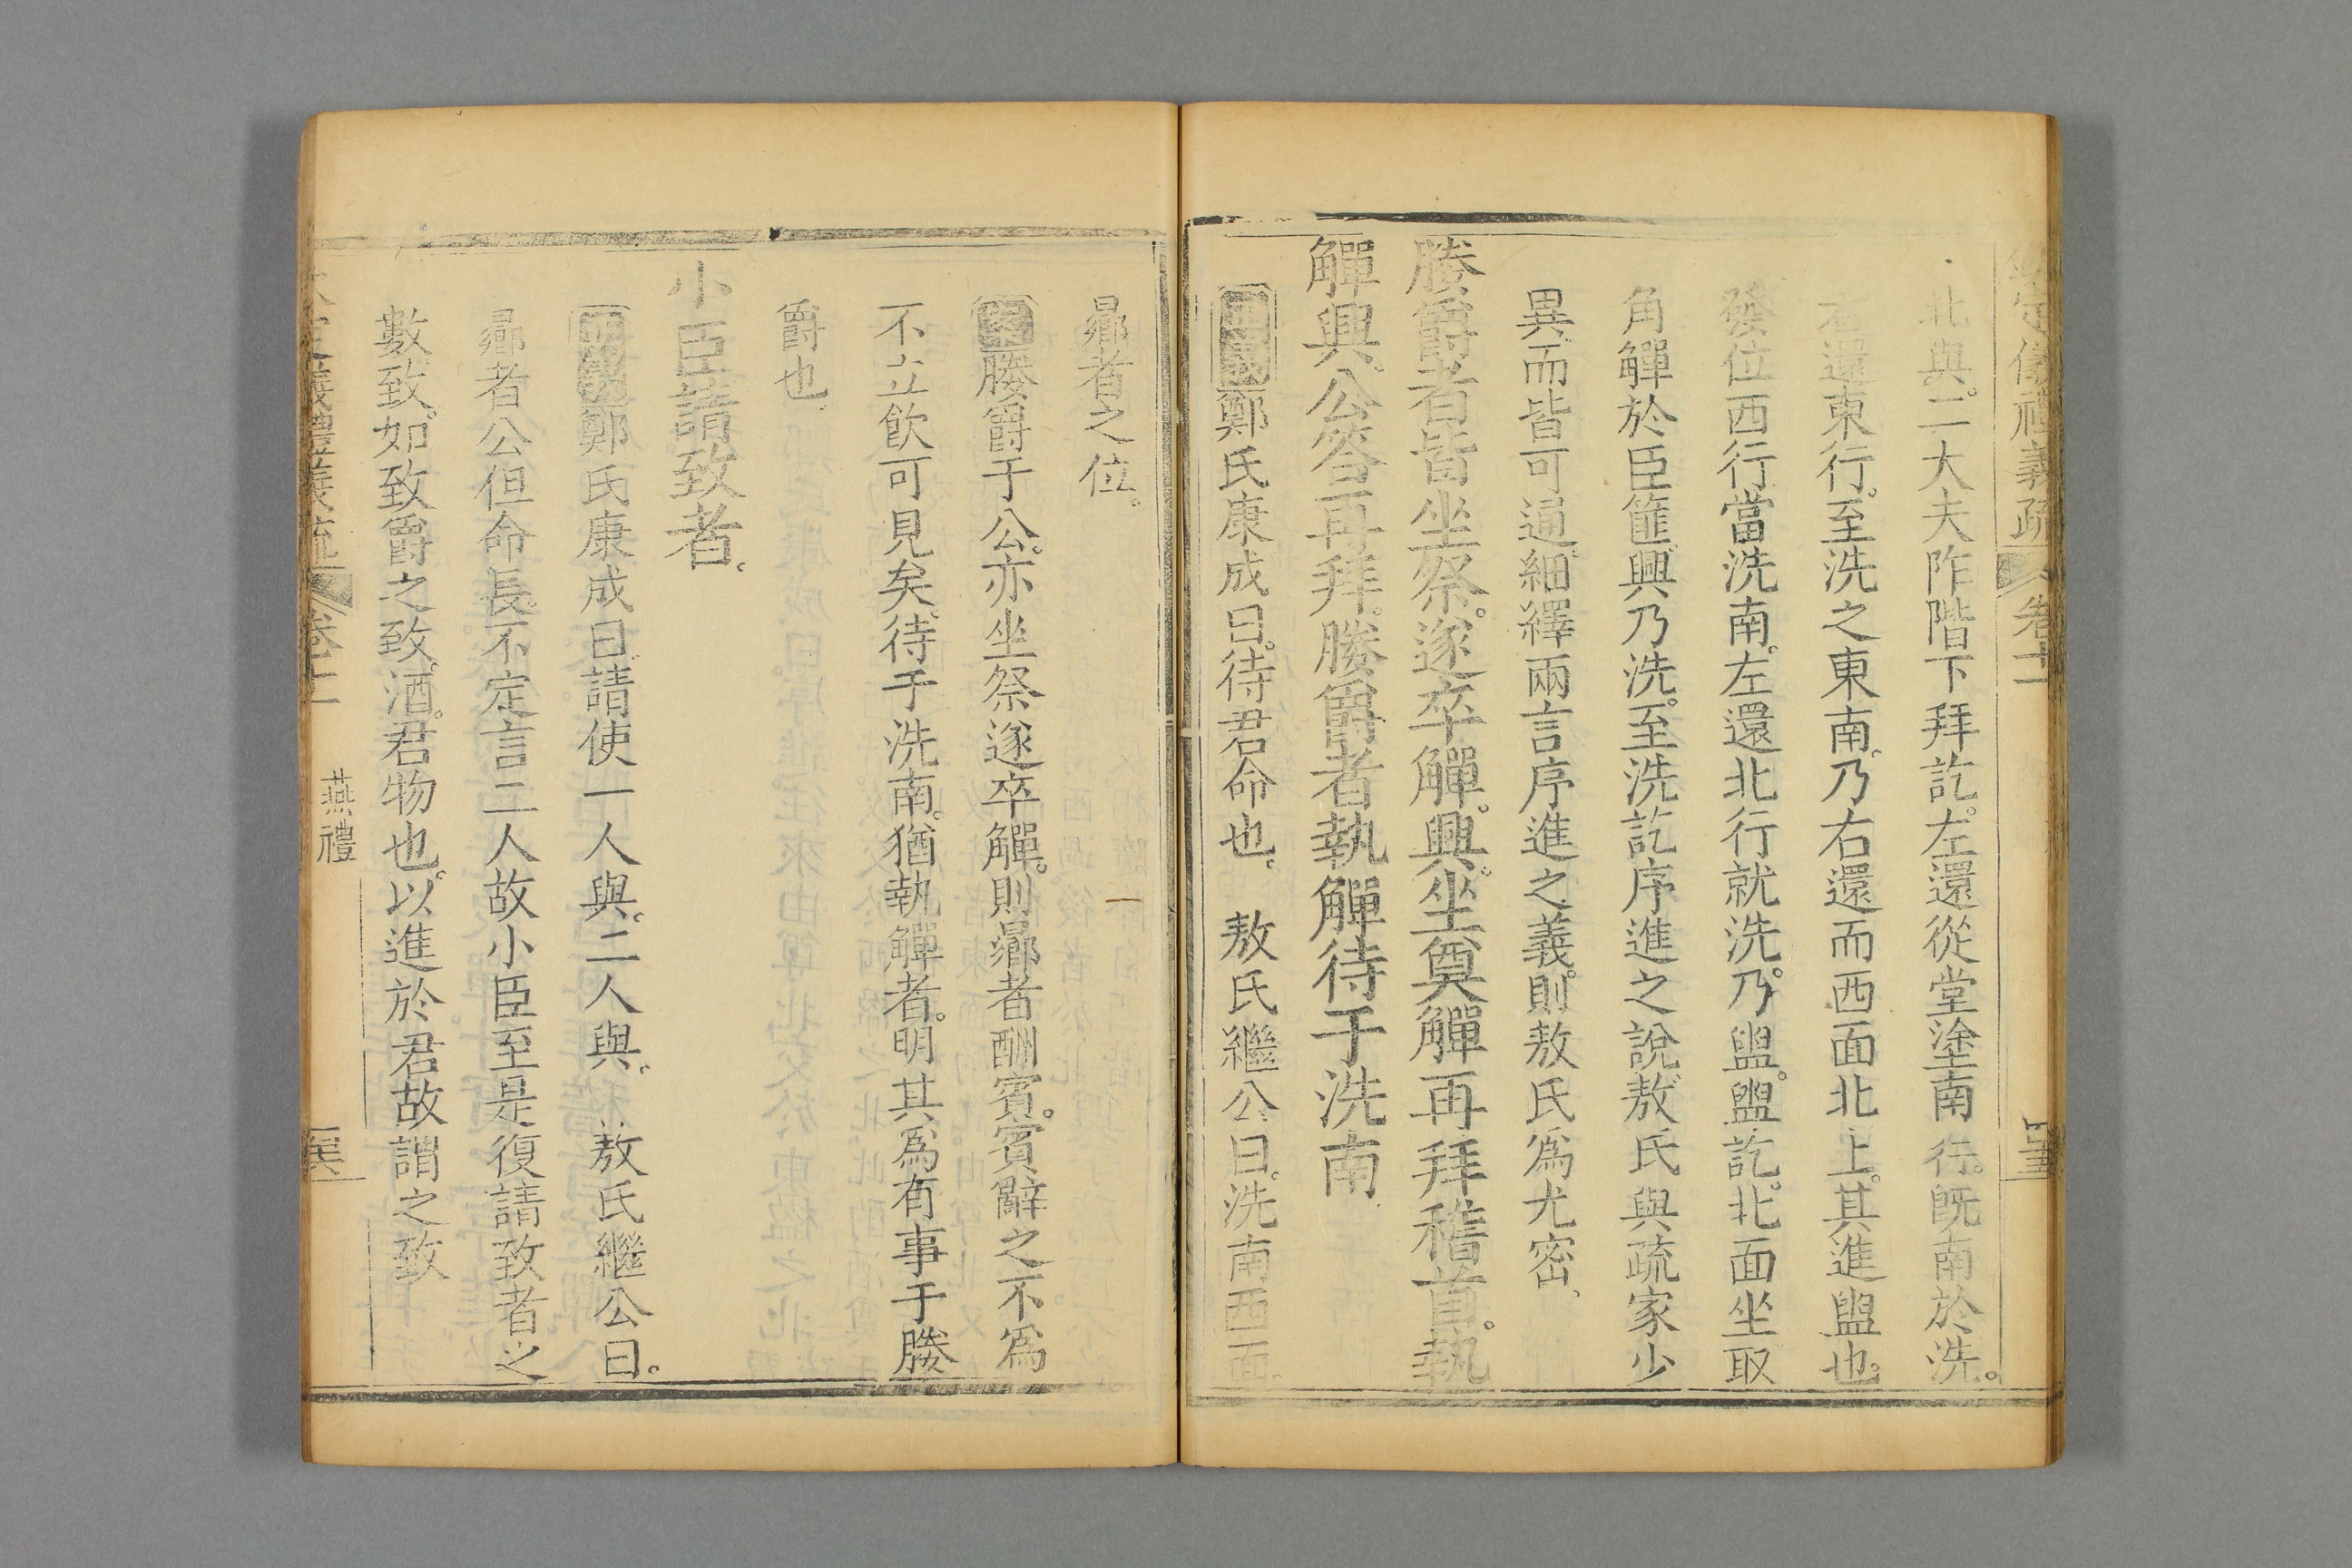 欽定儀禮義疏 卷十二
北與。二大夫阼階下拜訖。左還從堂塗南行。既南於洗。
右還東行。至洗之東南。乃右還而西面北上。其進盥也。
發位西行當洗南。左還北行就洗。乃盥。盥訖。北面坐取
角觶於臣篚。興乃洗。至洗訖序進之說。敖氏與疏家少
異。而皆可通。細繹兩言序進之義。則敖氏爲尤密。
媵爵者皆坐祭。遂卒觶。興。坐奠觶再拜稽首。執
觶興。公答再拜。媵爵者執觶待于洗南。
鄭氏康成曰。待君命也。 敖氏繼公曰。洗南西面
曏者之位。
媵爵于公。亦坐祭遂卒觶。則曏者酬賓。賓辭之不爲
不立飲可見矣。待于洗南。猶執觶者。明其爲有事于媵
爵也。
小臣請致者。
鄭氏康成曰。請使一人與。二人與。 敖氏繼公曰。
曏者公但命長。不定言二人故小臣至是復請致者之
數致。如致爵之致。酒。君物也。以進於君故謂之致
義禮義疏 卷十二 燕禮